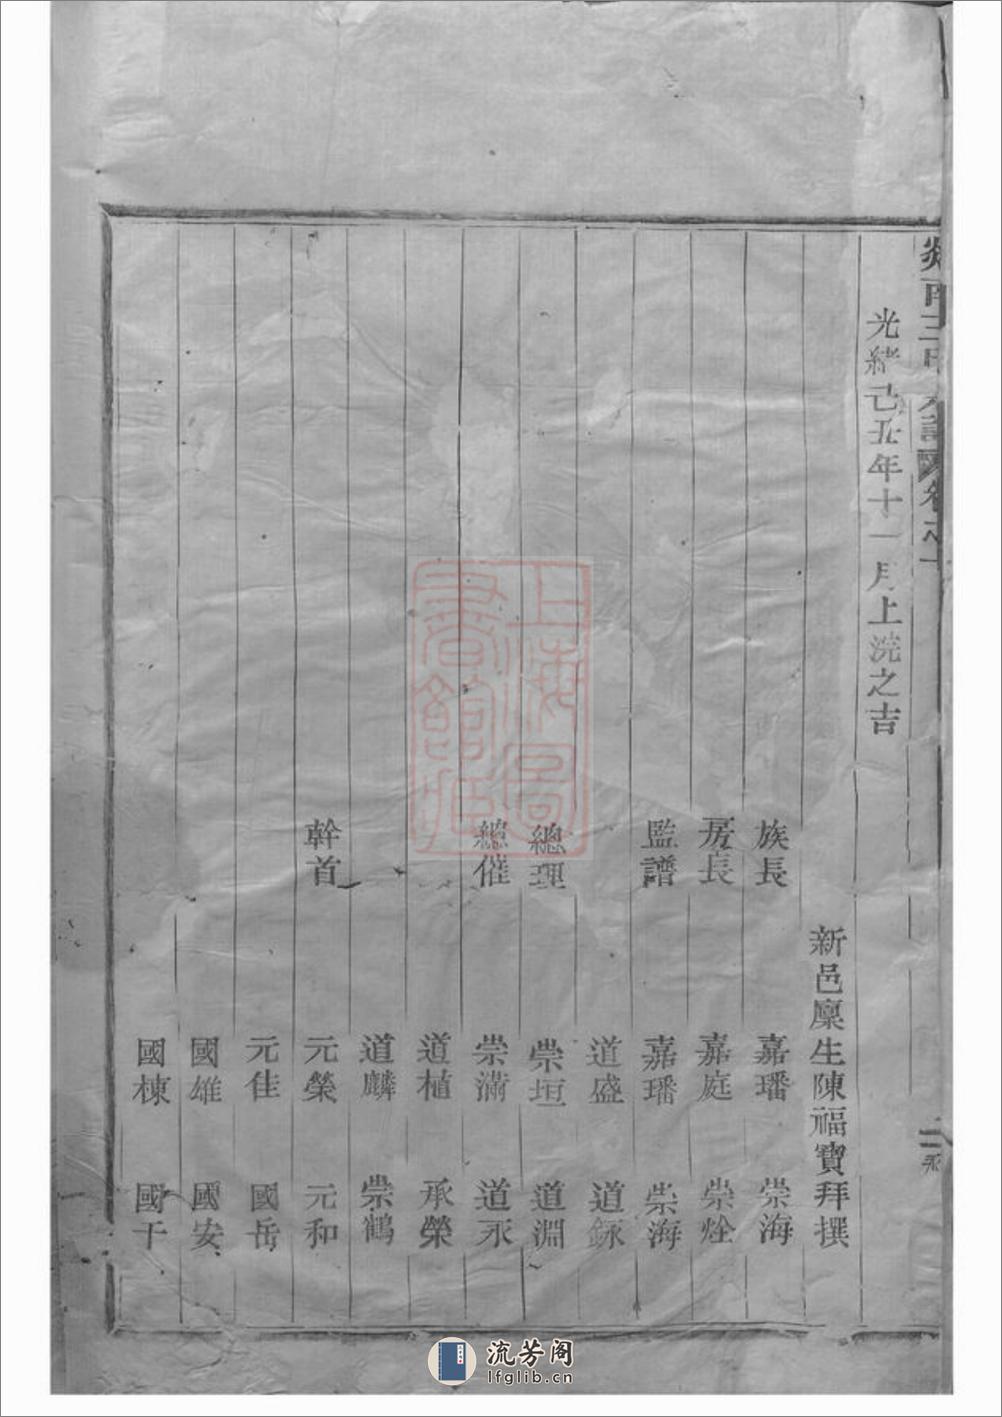 光緒己丑年十一月上浣之吉
新邑廩生陳福寶拜撰
族長 嘉璠 崇海
房長 嘉庭 崇烇
監譜 嘉璠 崇海
道盛 道銾
總理 崇垣 道淵
總催 崇滿 道永
道植 承榮
道麟 崇鶴
幹首 元榮 元和
元佳 國岳
國雄 國安
國棟 國干
卷之一
上海圖書館藏
流芳阁
lfglib.cn